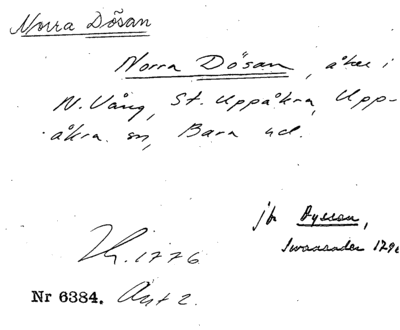 Norra Dösan
Norra Dösan, åker i
N. Vång, St. Uppåkra, Upp-
åkra sn, Bara hd.
jfr Dyssan,
Svanander 1796
Lh. 1776
Nr 6384. Akt 2.